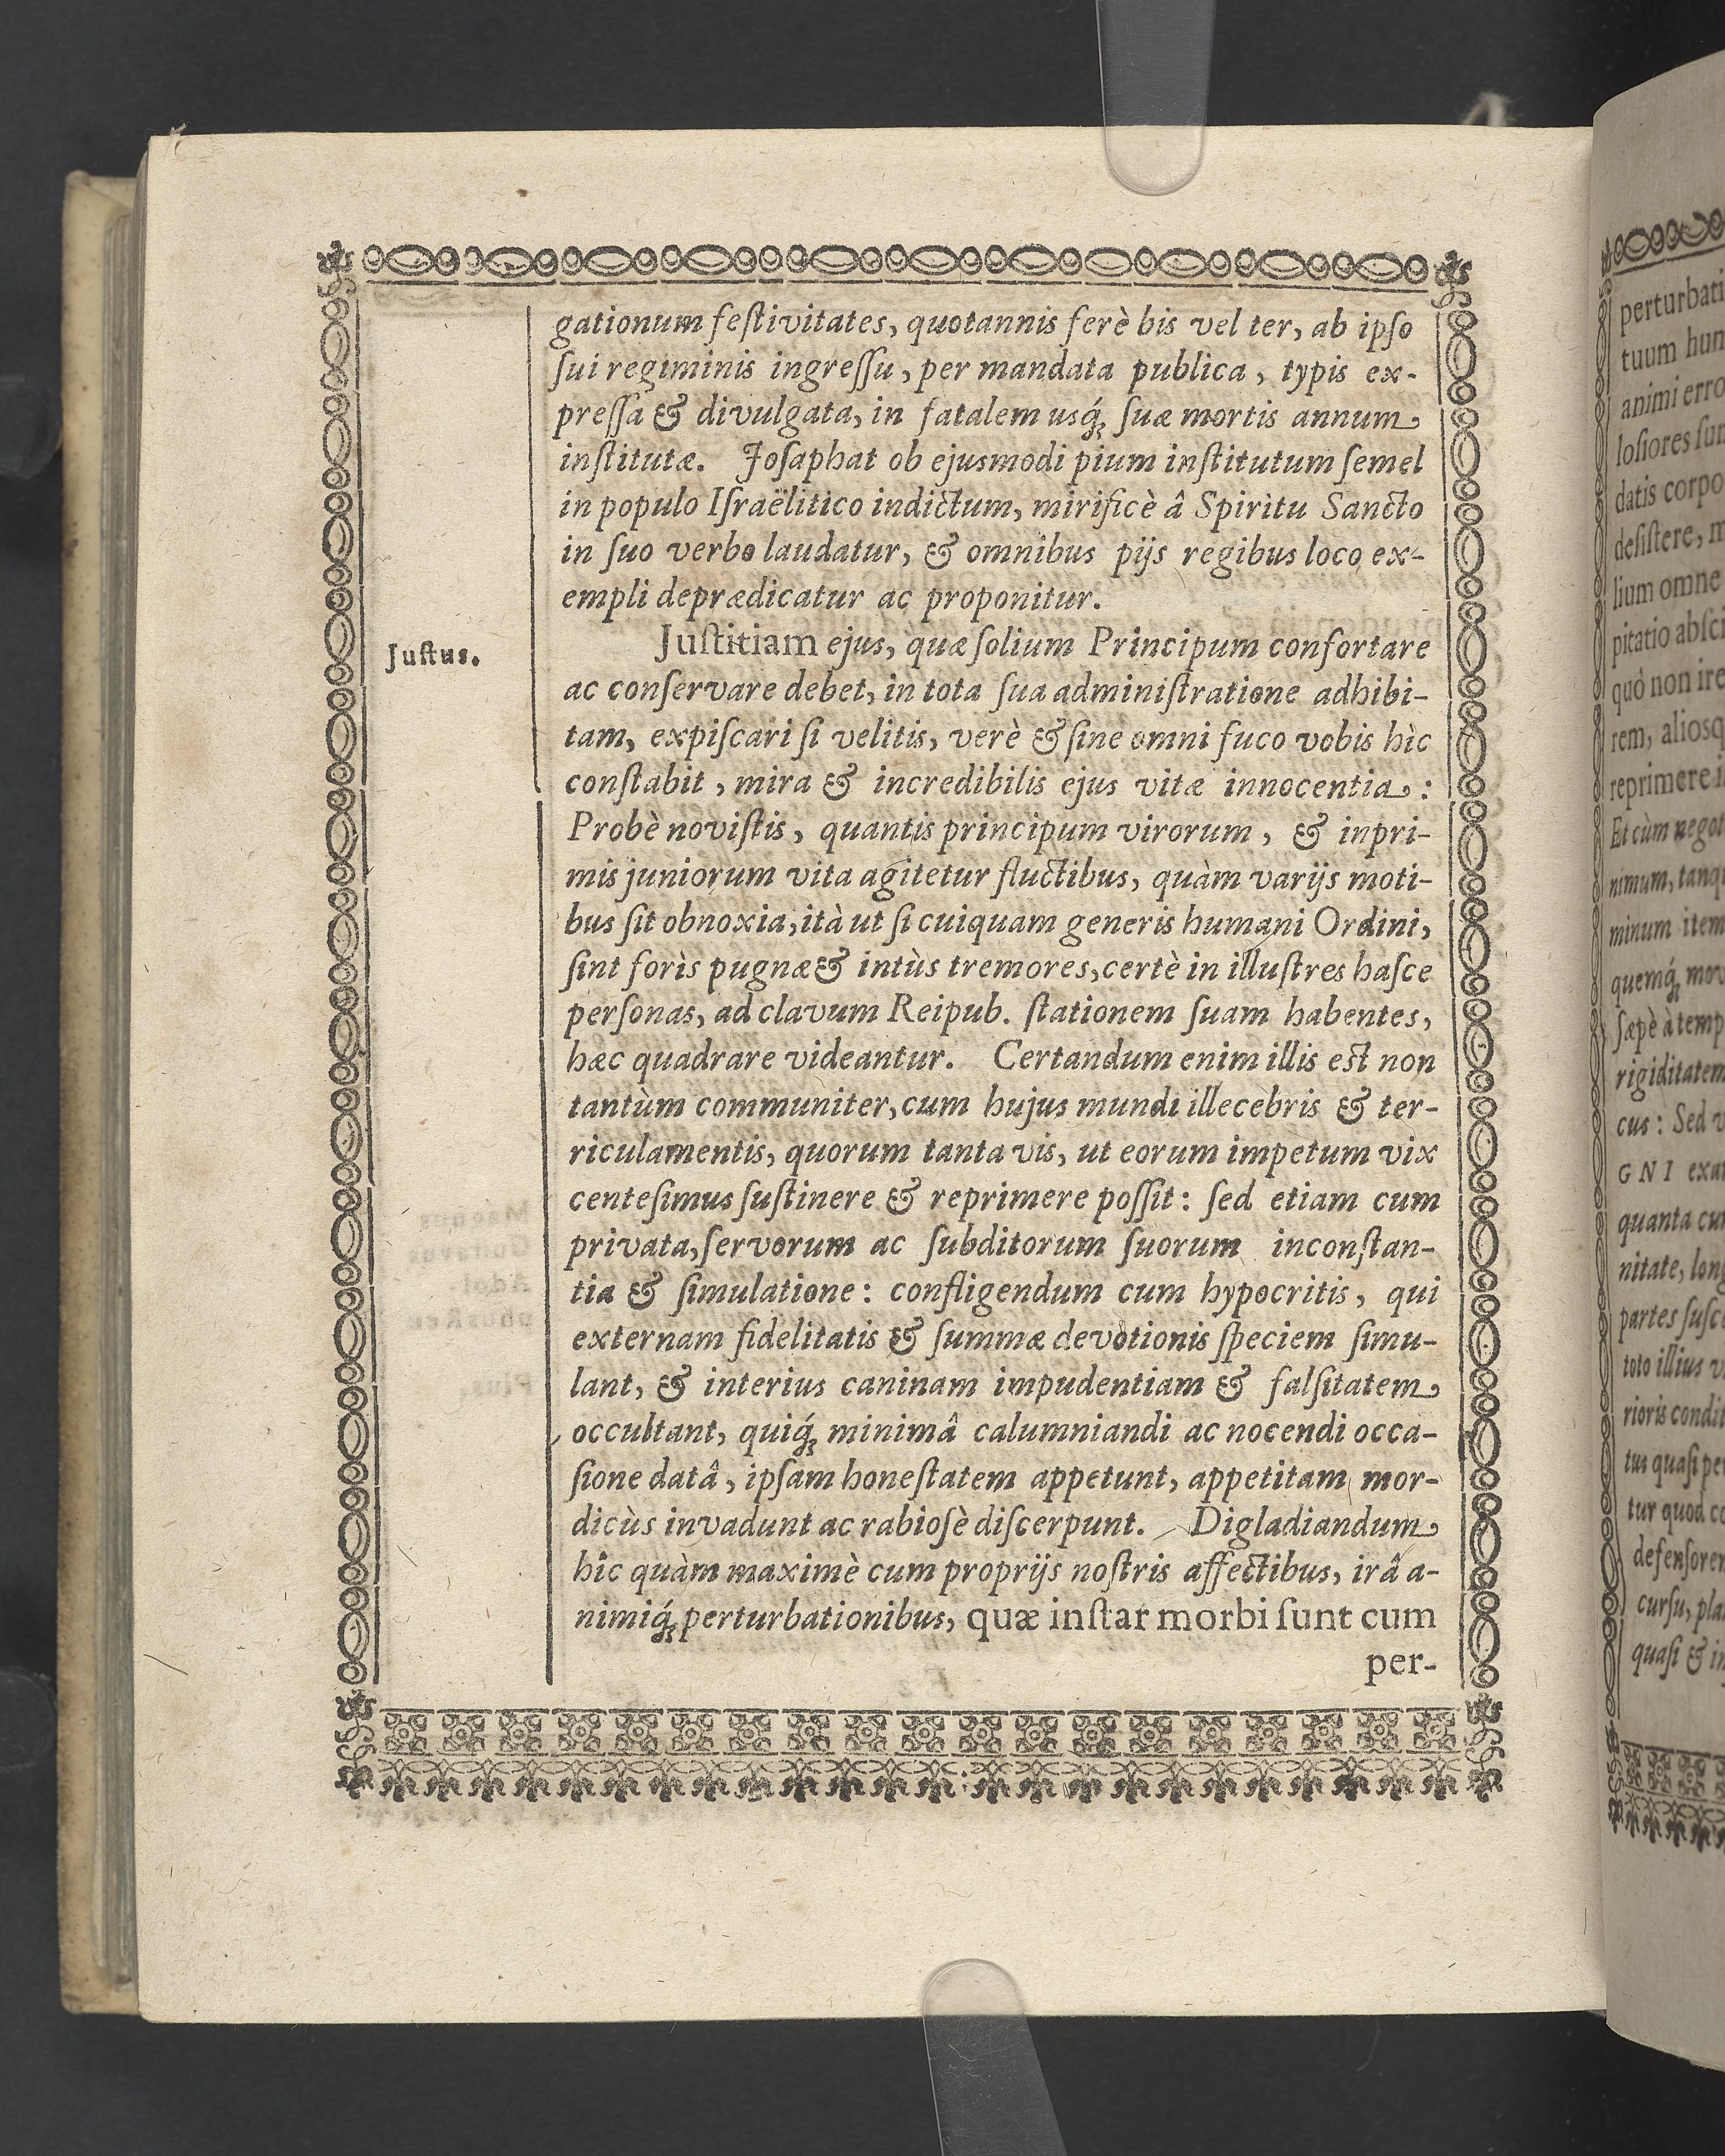 gationum feſtivitates, quotannis ferè bis vel ter, ab ipſo
ſui regiminis ingreſſu, per mandata publica, typis ex-
preſſa & divulgata, in fatalem usq́; ſuæ mortis annum
inſtitutæ. Joſaphat ob ejusmodi pium inſtitutum ſemel
in populo Iſraëlitico indictum, mirificè â Spiritu Sancto
in ſuo verbo laudatur, & omnibus pijs regibus loco ex-
empli deprædicatur ac proponitur.
Juſtus.
Juſtitiam ejus, quæ ſolium Principum confortare
ac conſervare debet, in tota ſua adminiſtratione adhibi-
tam, expiſcari ſi velitis, verè & ſine omni fuco vobis hìc
conſtabit, mira & incredibilis ejus vitæ innocentia:
Probè noviſtis, quantis principum virorum, & inpri-
mis juniorum vita agitetur fluctibus, quàm varijs moti-
bus ſit obnoxia, ità ut ſi cuiquam generis humani Ordini,
ſint forìs pugnæ & intùs tremores, certè in illuſtres haſce
perſonas, ad clavum Reipub. ſtationem ſuam habentes,
hæc quadrare videantur. Certandum enim illis eſt non
tantùm communiter, cum hujus mundi illecebris & ter-
riculamentis, quorum tanta vis, ut eorum impetum vix
centeſimus ſuſtinere & reprimere poſſit: ſed etiam cum
privata, ſervorum ac ſubditorum ſuorum inconſtan-
tia & ſimulatione: confligendum cum hypocritis, qui
externam fidelitatis & ſummæ devotionis ſpeciem ſimu-
lant, & interius caninam impudentiam & falſitatem
occultant, quiq́; minimâ calumniandi ac nocendi occa-
ſione datâ, ipſam honeſtatem appetunt, appetitam mor-
dicùs invadunt ac rabioſè diſcerpunt. Digladiandum
hîc quàm maximè cum proprijs noſtris affectibus, irâ a-
nimiq́; perturbationibus, quæ inſtar morbi ſunt cum
per-
perturbati
tuum hum
animi erro
loſiores ſun
datis corpo
deſiſtere, m
lium omne
pitatio abſci
quò non ire
rem, aliosq
reprimere i
Et cùm negot
nimum, tanq
minum item
quemq́; mov
ſæpè à temp
rigiditatem
cus: Sed v
GNI exa
quanta cu
nitate, long
partes ſuſc
toto illius v
rioris condit
tus quaſi pe
tur quod co
defenſore
curſu, pla
quaſi & in